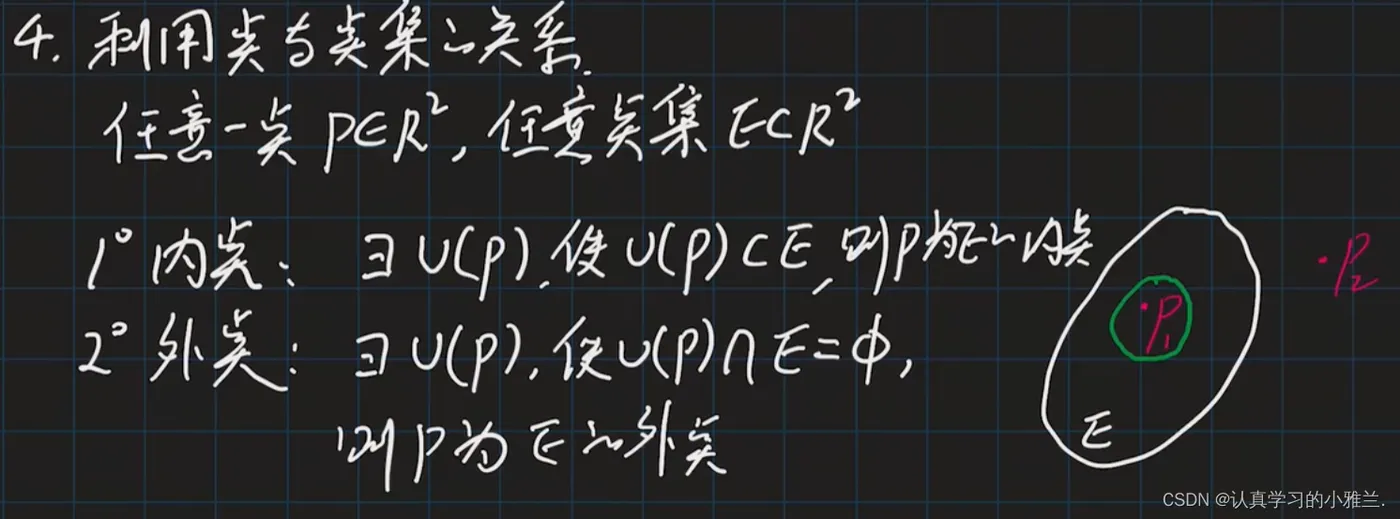 4. 利用点与点集的关系.
任意一点 P∈R², 任意点集 E⊂R²
1° 内点: ∃ U(P), 使 U(P)⊂E, 则P为E的内点
2° 外点: ∃ U(P), 使U(P)∩E=ф,
则P为E的外点
P₁
P₂
E
CSDN @认真学习的小雅兰.